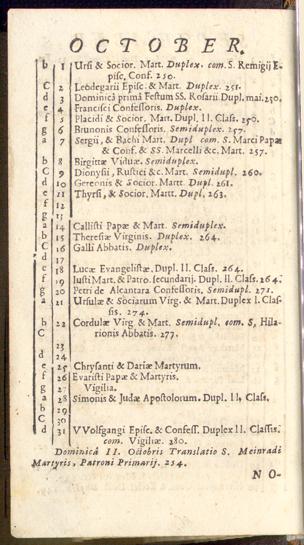 OCTOBER.
b 1 Ursi & Socior. Mart. Duplex. com. S. Remigij E-
pisc, Conf. 250.
C 2 Leodegarii Episc. & Mart. Duplex. 251.
d 3 Dominicâ primâ Festum SS. Rosarii Dupl. mai. 250.
e 4 Francisci Confessoris. Duplex.
f 5 Placidi & Socior. Mart. Dupl. II. Class. 250.
g 6 Brunonis Confessoris. Semiduplex. 257.
a 7 Sergii, & Bachi Mart. Dupl com. S. Marci Papæ
& Conf. & SS. Marcelli &c. Mart. 257.
b 8 Birgittæ Viduæ. Semiduplex.
C 9 Dionysii, Rustici &c. Mart. Semidupl. 260.
d 10 Gereonis & Socior. Martt. Dupl. 261.
e 11 Thyrsi, & Socior. Martt. Dupl. 263.
f 12
g 13
a 14 Callisti Papæ & Mart. Semiduplex.
b 15 Theresiæ Virginis. Duplex. 264.
C 16 Galli Abbatis. Duplex.
d 17
e 18 Lucæ Evangelistæ. Dupl. II Class. 264.
f 19 Iusti Mart. & Patro. secundarij. Dupl. II. Class. 264.
g 20 Petri de Alcantara Confessoris, Semidupl. 271.
a 21 Ursulæ & Sociarum Virg. & Mart. Duplex I. Clas-
sis. 274.
b 22 Cordulæ Virg & Mart. Semidupl. com. S, Hila-
C rionis Abbatis. 277.
23
d 24
e 25 Chrysanti & Dariæ Martyrum.
f 26 Evaristi Papæ & Martyris.
g 27 Vigilia.
a 28 Simonis & Judæ Apostolorum. Dupl. II, Class.
b 29
C 30
d 31 VVolfgangi Episc. & Confess. Duplex II. Classis.
com. Vigiliæ. 280.
Dominicâ II. Octobris Translatio S. Meinradi
Martyris, Patroni Primarij. 254.
NO-